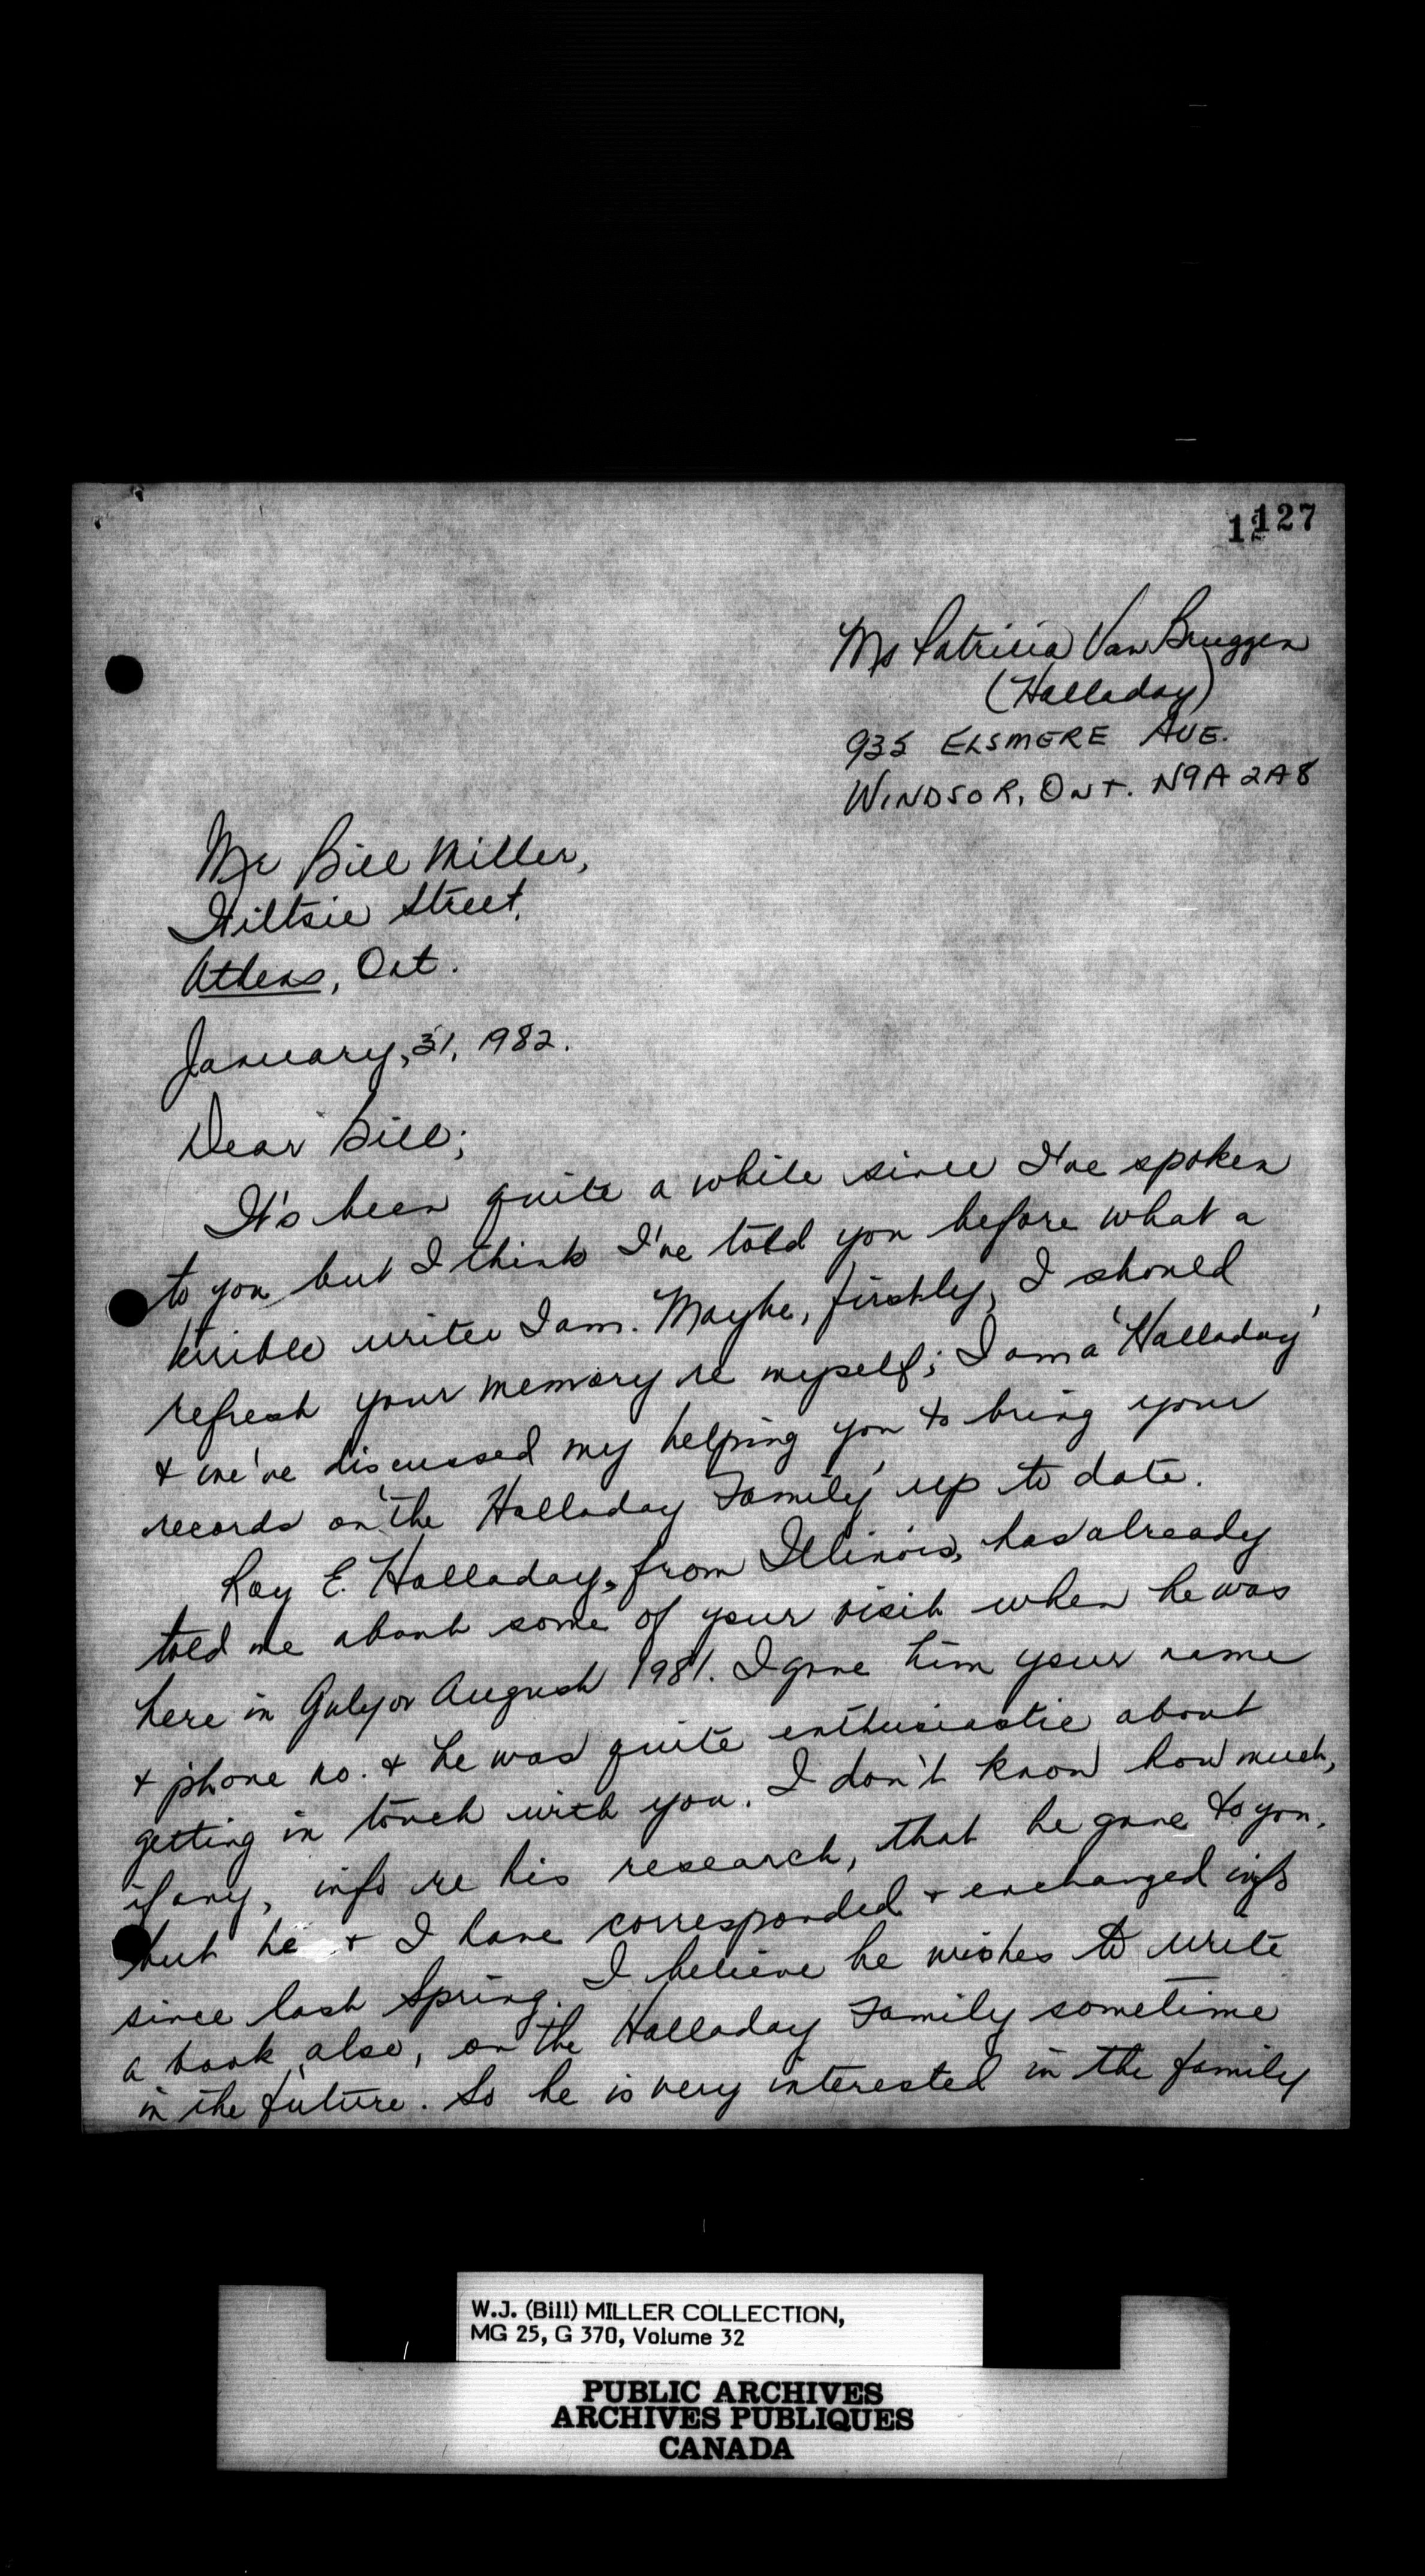 127
Ms Patricia Van Bruggen
(Halladay)
935 ELSMERE AVE.
WINDSOR, ONT. N9A 2A8
Mr Bill Miller,
Wiltsie Street,
Athens, Ont.
January, 31, 1982.
Dear Bill;
It's been quite a while since I've spoken
to you but I think I've told you before what a
terrible writer I am. Maybe, firstly, I should
refresh your memory re myself; I am a 'Halladay'
& we've discussed my helping you to bring your
records on 'the Halladay Family' up to date.
Roy E. Halladay, from Illinois, has already
told me about some of your visit when he was
here in July or August 1981. I gave him your name
& phone no. & he was quite enthusiastic about
getting in touch with you. I don't know how much,
if any, info re his research, that he gave to you,
but he & I have corresponded & exchanged info
since last Spring. I believe he wishes to write
a book, also, on the Halladay Family sometime
in the future. So he is very interested in the family
W.J. (Bill) MILLER COLLECTION,
MG 25, G 370, Volume 32
PUBLIC ARCHIVES
ARCHIVES PUBLIQUES
CANADA